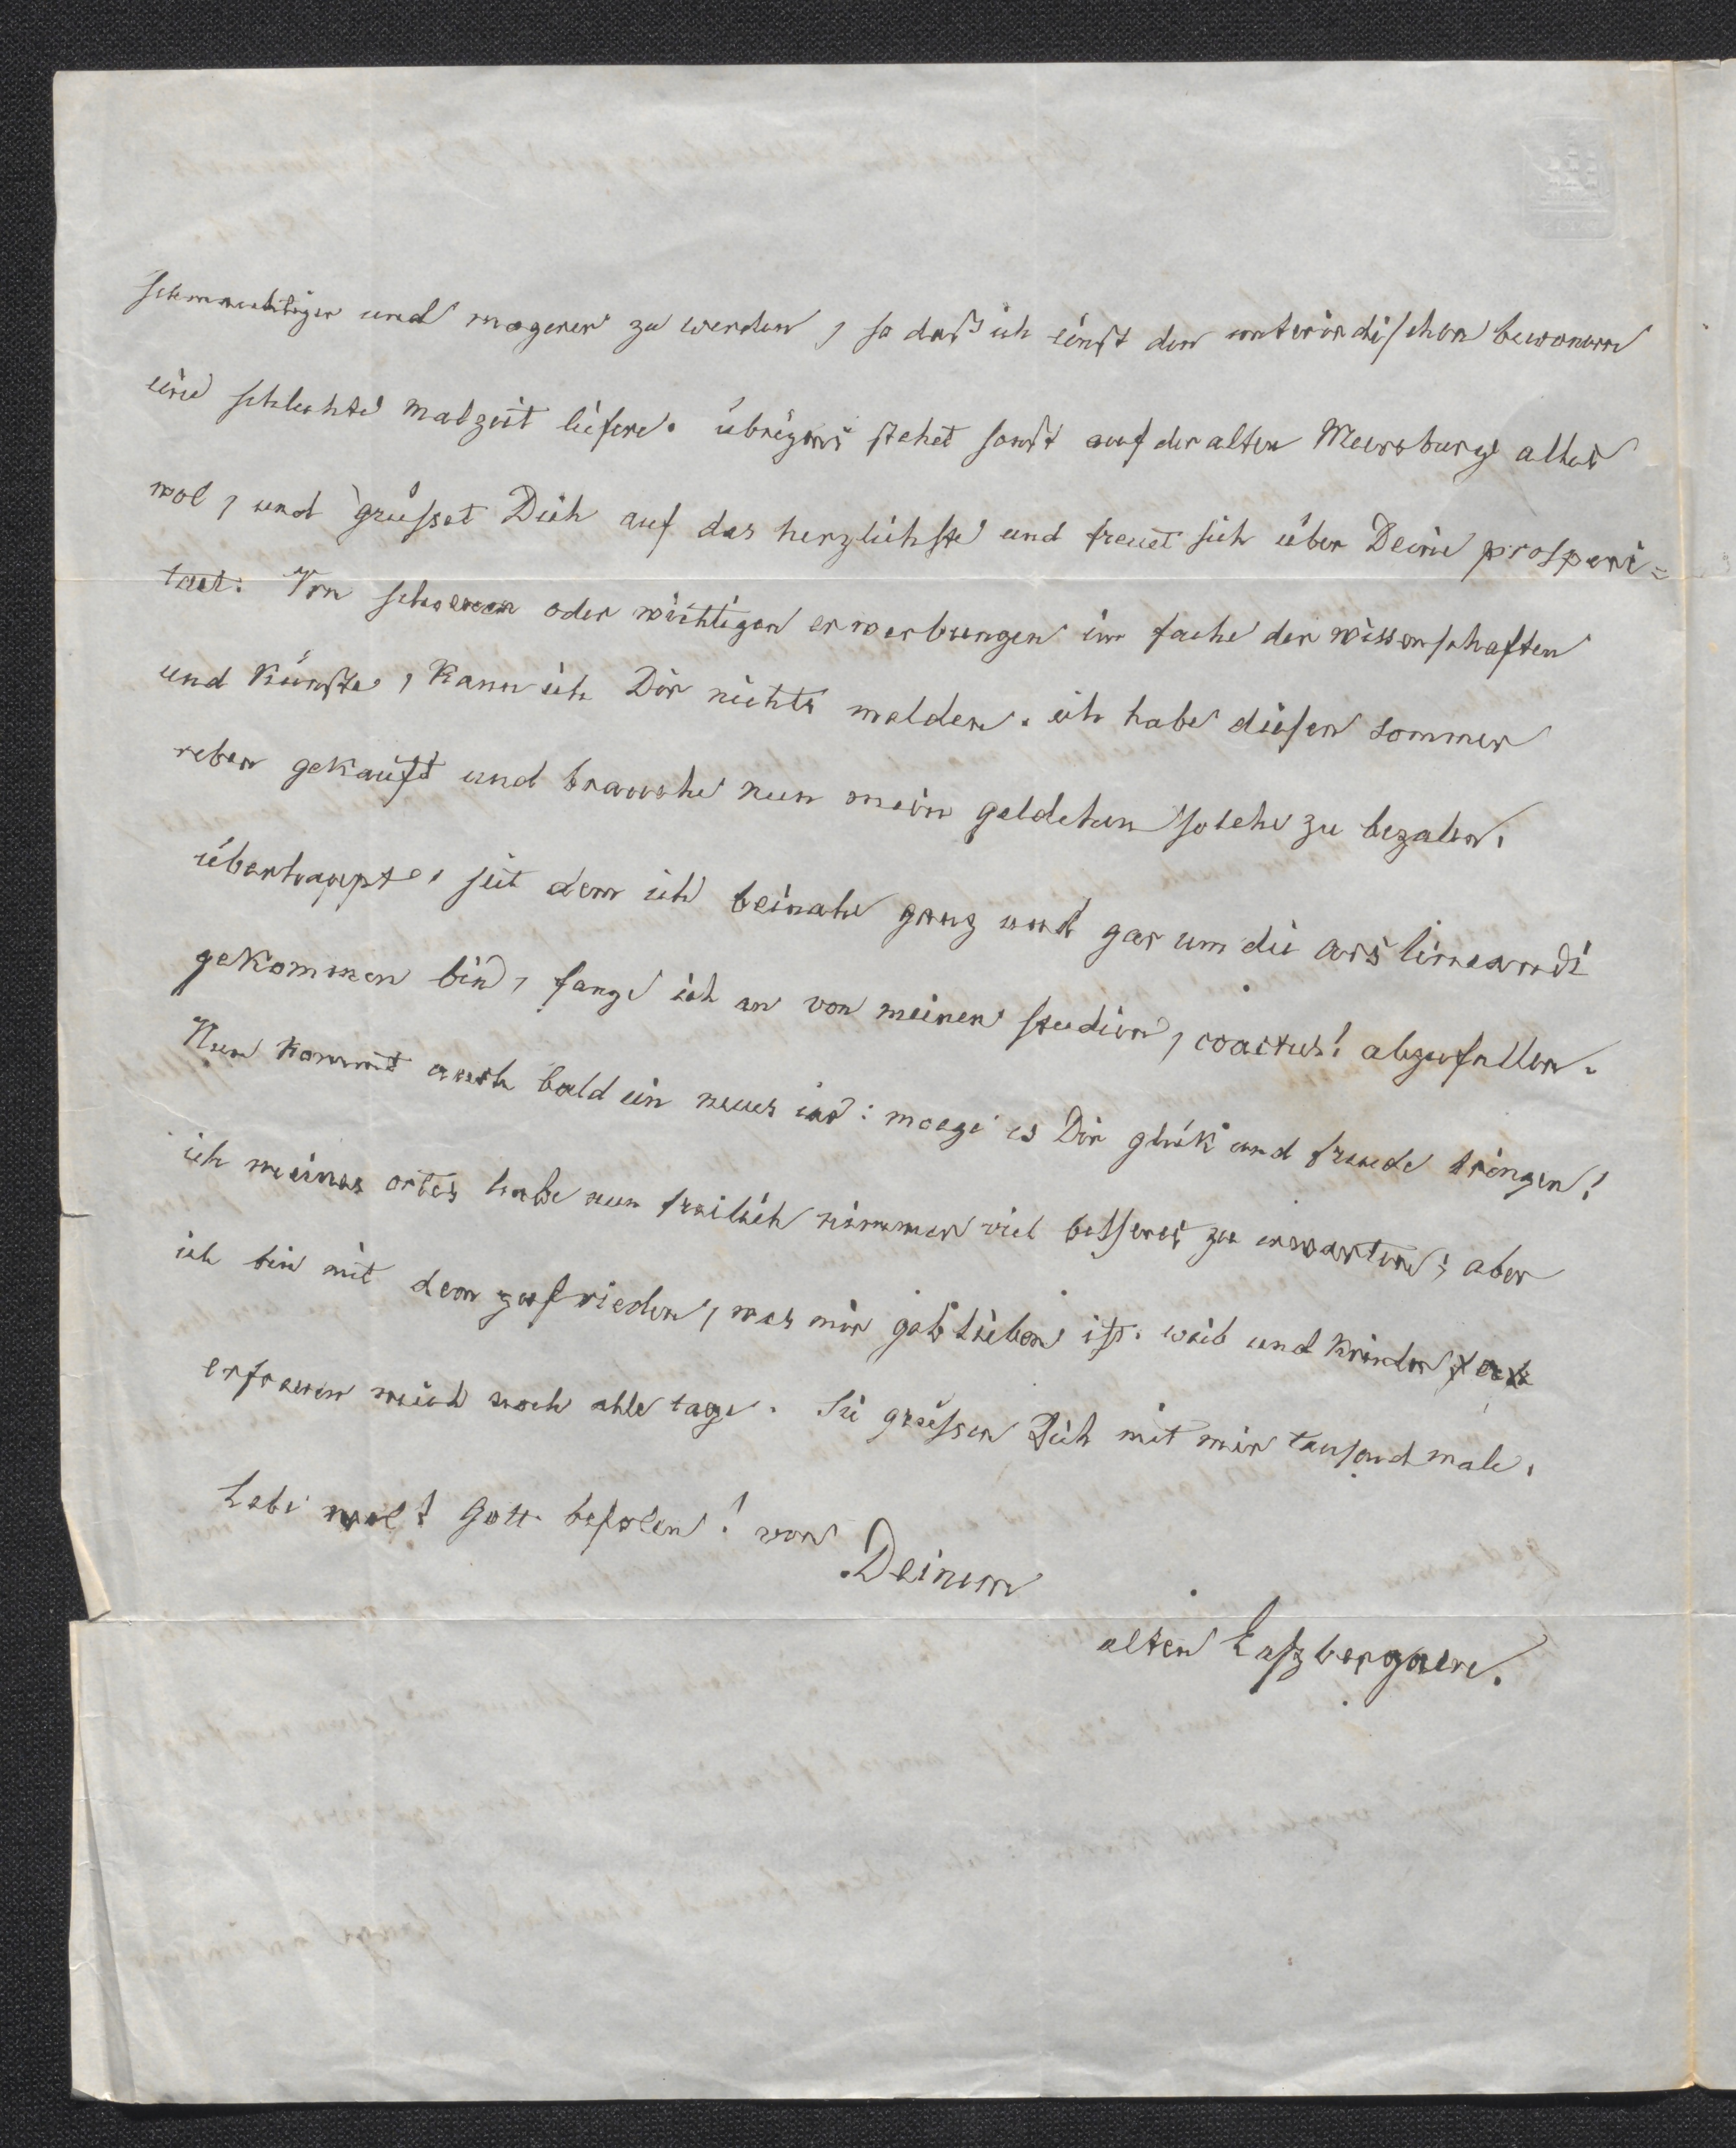 schmaechtiger und magerer zu werden, so daß ich einst den unterirdischen bewonern
eine schlechte malzeit liefere. übrigens stehet sonst auf der alten Meersburg alles
wol, und grüsset Dich auf das herzlichste und freuet sich über Deine prosperi=
taet. Von schoenen oder wichtigen erwerbungen im fache der wissenschaften
und Künste, Kann ich Dir nichts melden. ich habe diesen sommer
reben gekauft und brauche nun mein geldchen solche zu bezalen.
überhaupt, seit dem ich beinahe ganz und gar um die ars lineandi
gekommen bin, fange ich an von meinen studien, coactus! abzufallen.
Nun kommt auch bald ein neues iar: moege es Dir glük und freude bringen!
ich meines ortes habe nun freilich nimmer viel besseres zu erwarten; aber
ich bin mit dem zufrieden, was mir geblieben ist. weib und kinder
erfreuen mich noch alle tage. Sie grüssen Dich mit mir tausend male.
Lebe wol! Gott befolen! von
Deinem
alten Laszbergaere.